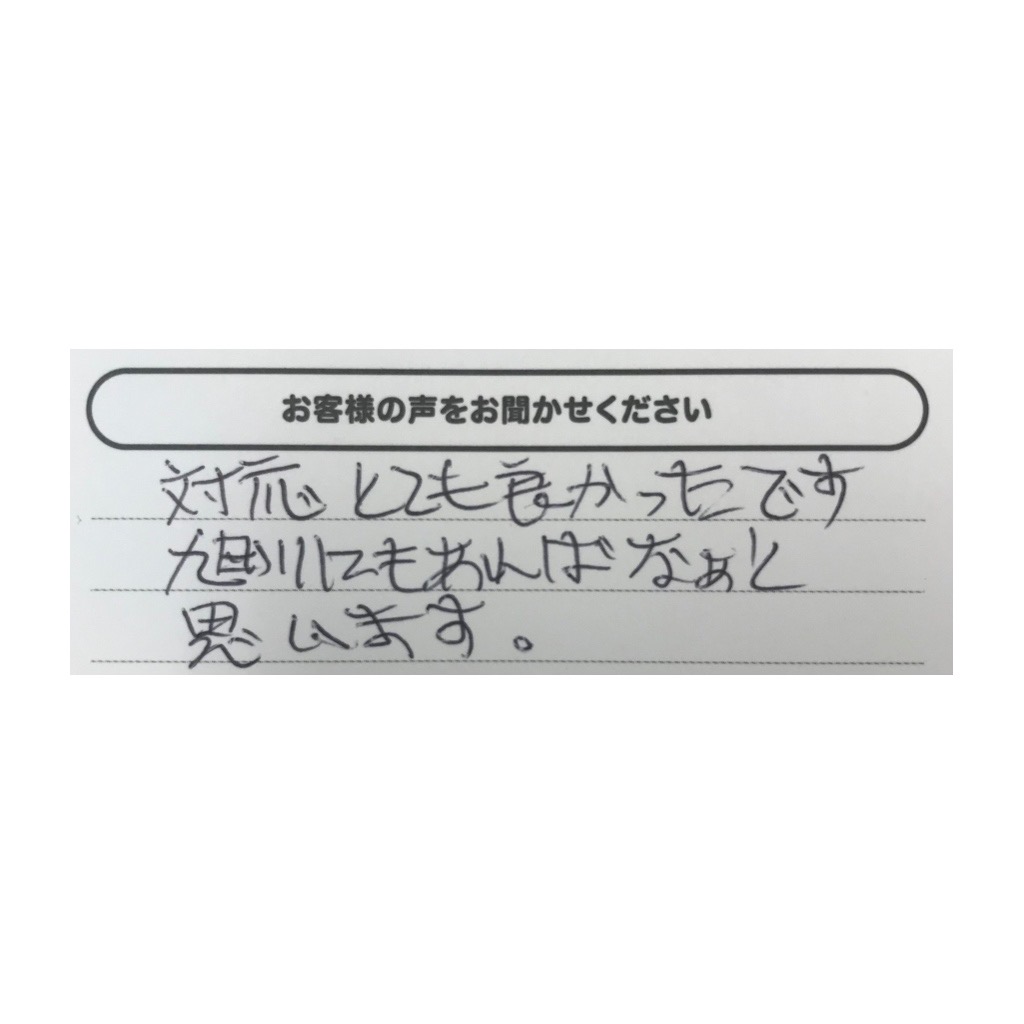 お客様の声をお聞かせください
対応とても良かったです
旭川にもあればなぁと
思います。